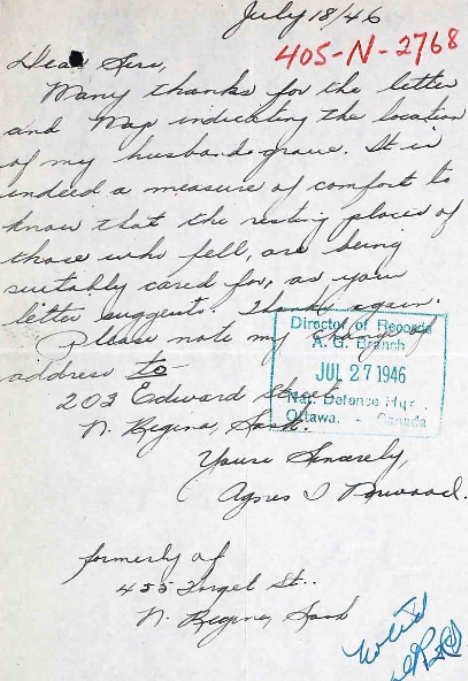 July 18/46
405-N-2768
Dear Sirs,
Many thanks for the letter
and Map indicating the location
of my husbands grave. It is
indeed a measure of comfort to
know that the resting places of
those who fell, are being
suitably cared for, as your
letter suggests. Thanks again.
Please note my change of
address to
203 Edward Street
N. Regina, Sask.
Director of Records
A. G. Branch
JUL 27 1946
Nat. Defence Hqr.
Ottawa. - Canada
Yours Sincerely,
Agnes I
formerly of
455 St..
N. Regina, Sask
Noted